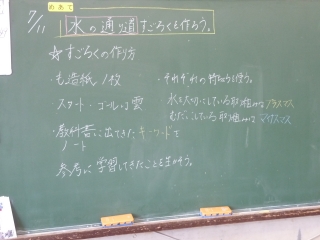 めあて
7/11 水の通り道すごろくを作ろう。
☆すごろくの作り方
・も造紙1枚
・それぞれの持ちものを使う。
・スタート・ゴールは雲
・水を大切にしている取り組みはプラスマス
むだにしている取り組みはマイナスマス
・教科書に出てきたキーワードを
ノート
参考に学習してきたことを生かそう。